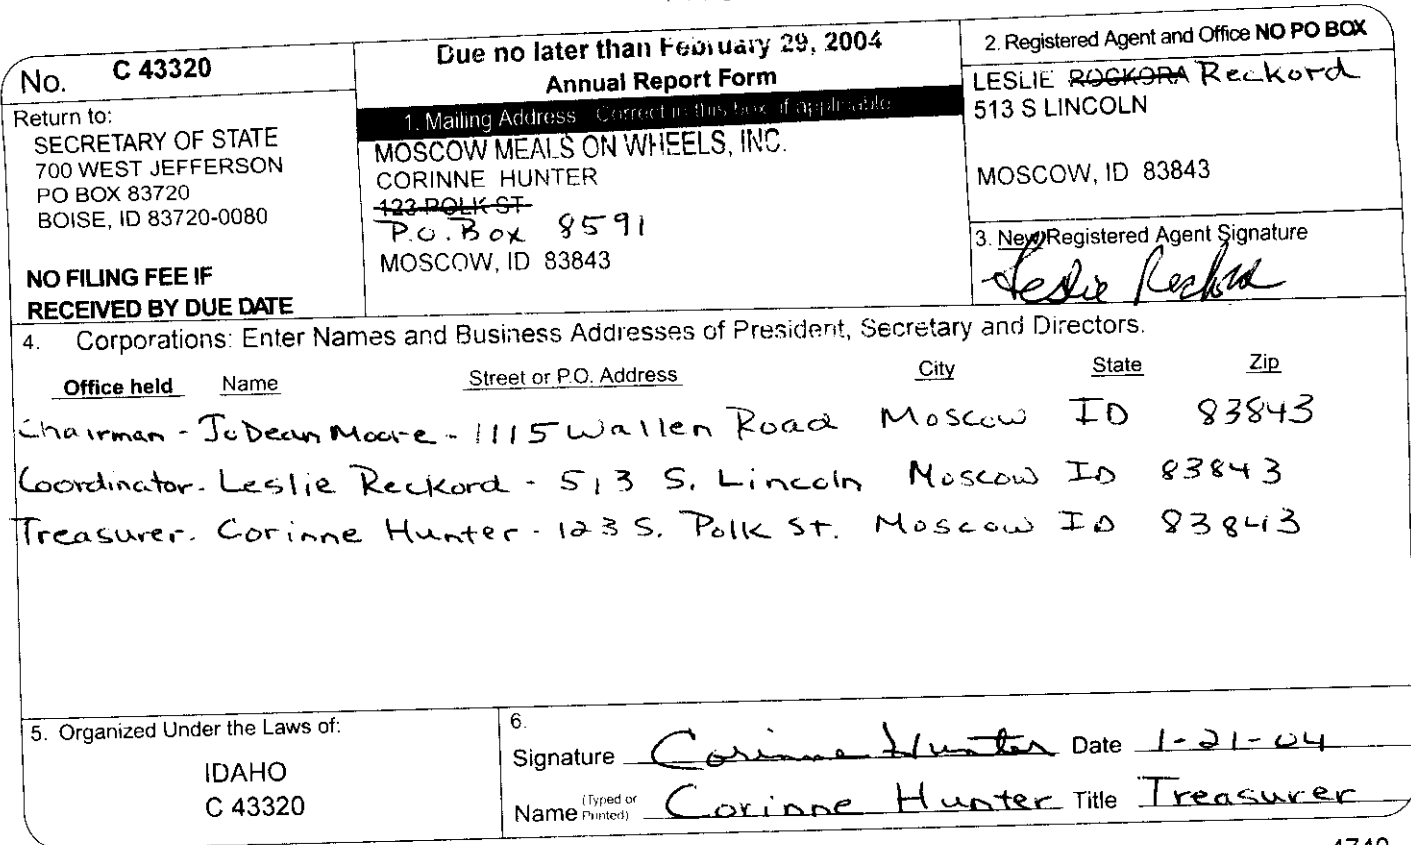 No. C 43320
Return to:
SECRETARY OF STATE
700 WEST JEFFERSON
PO BOX 83720
BOISE, ID 83720-0080
NO FILING FEE IF
RECEIVED BY DUE DATE
Due no later than February 29, 2004
Annual Report Form
1. Mailing Address Correct in this box, if applicable
MOSCOW MEALS ON WHEELS, INC.
CORINNE HUNTER
123 POLK ST
P.O. Box 8591
MOSCOW, ID 83843
2. Registered Agent and Office NO PO BOX
LESLIE ROCKORA Reckord
513 S LINCOLN
MOSCOW, ID 83843
3. New Registered Agent Signature
Leslie Reckord
4. Corporations: Enter Names and Business Addresses of President, Secretary and Directors.
Office held Name Street or P.O. Address City State Zip
Chairman - JoDean Moore - 1115 Wallen Road Moscow ID 83843
Coordinator - Leslie Reckord - 513 S. Lincoln Moscow ID 83843
Treasurer - Corinne Hunter - 123 S. Polk St. Moscow ID 83843
5. Organized Under the Laws of:
IDAHO
C 43320
6.
Signature Corinne Hunter Date 1-21-04
Name (Typed or Printed) Corinne Hunter Title Treasurer